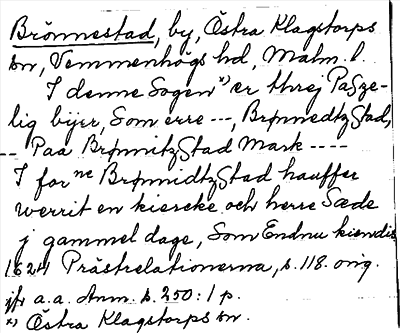 Brönnestad, by, Östra Klagstorps
sn, Vemmenhögs hd, Malm. l.
I denne Sogen x) er threj PaSze-
lig bÿer, Som erre ---, BrønnedtzStad,
-- Paa BrønnitzStad Mark ----
I for ne BrønnidtzStad hauffer
werrit en kiercke och herre Sæde
j gammel dage, Som Endnu kiendis
1624 Prästrelationerna, s. 118. orig.
jfr a.a. Anm. s. 250: 1 p.
x) Östra Klagstorps sn.